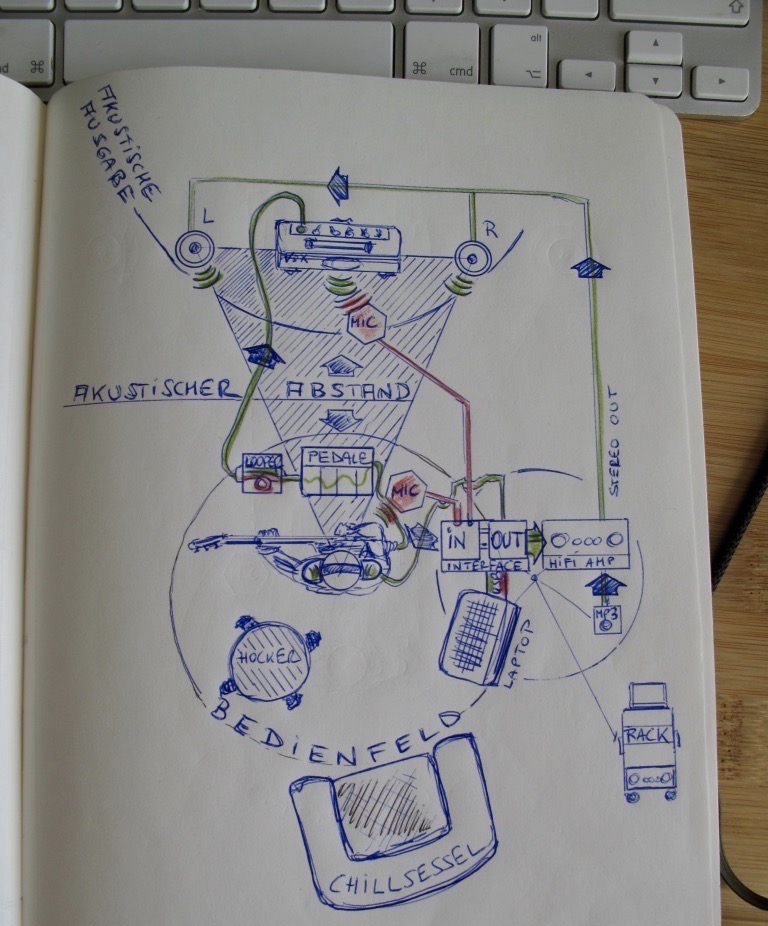 alt
⌘
⌘ cmd
AKUSTISCHE
AUSGABE
L
R
VOX
MIC
AKUSTISCHER ABSTAND
STEREO OUT
LOOPER
PEDALE
MIC
IN OUT
INTERFACE
HIFI AMP
MP3
LAPTOP
HOCKER
RACK
BEDIENFELD
CHILLSESSEL